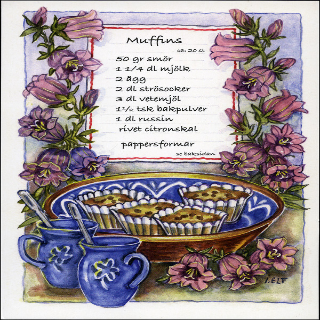 Muffins
ca. 20 st.
50 gr smör
1 1/4 dl mjölk
2 ägg
2 dl strösocker
3 dl vetemjöl
1½ tsk bakpulver
1 dl russin
rivet citronskal
pappersformar
se baksidan